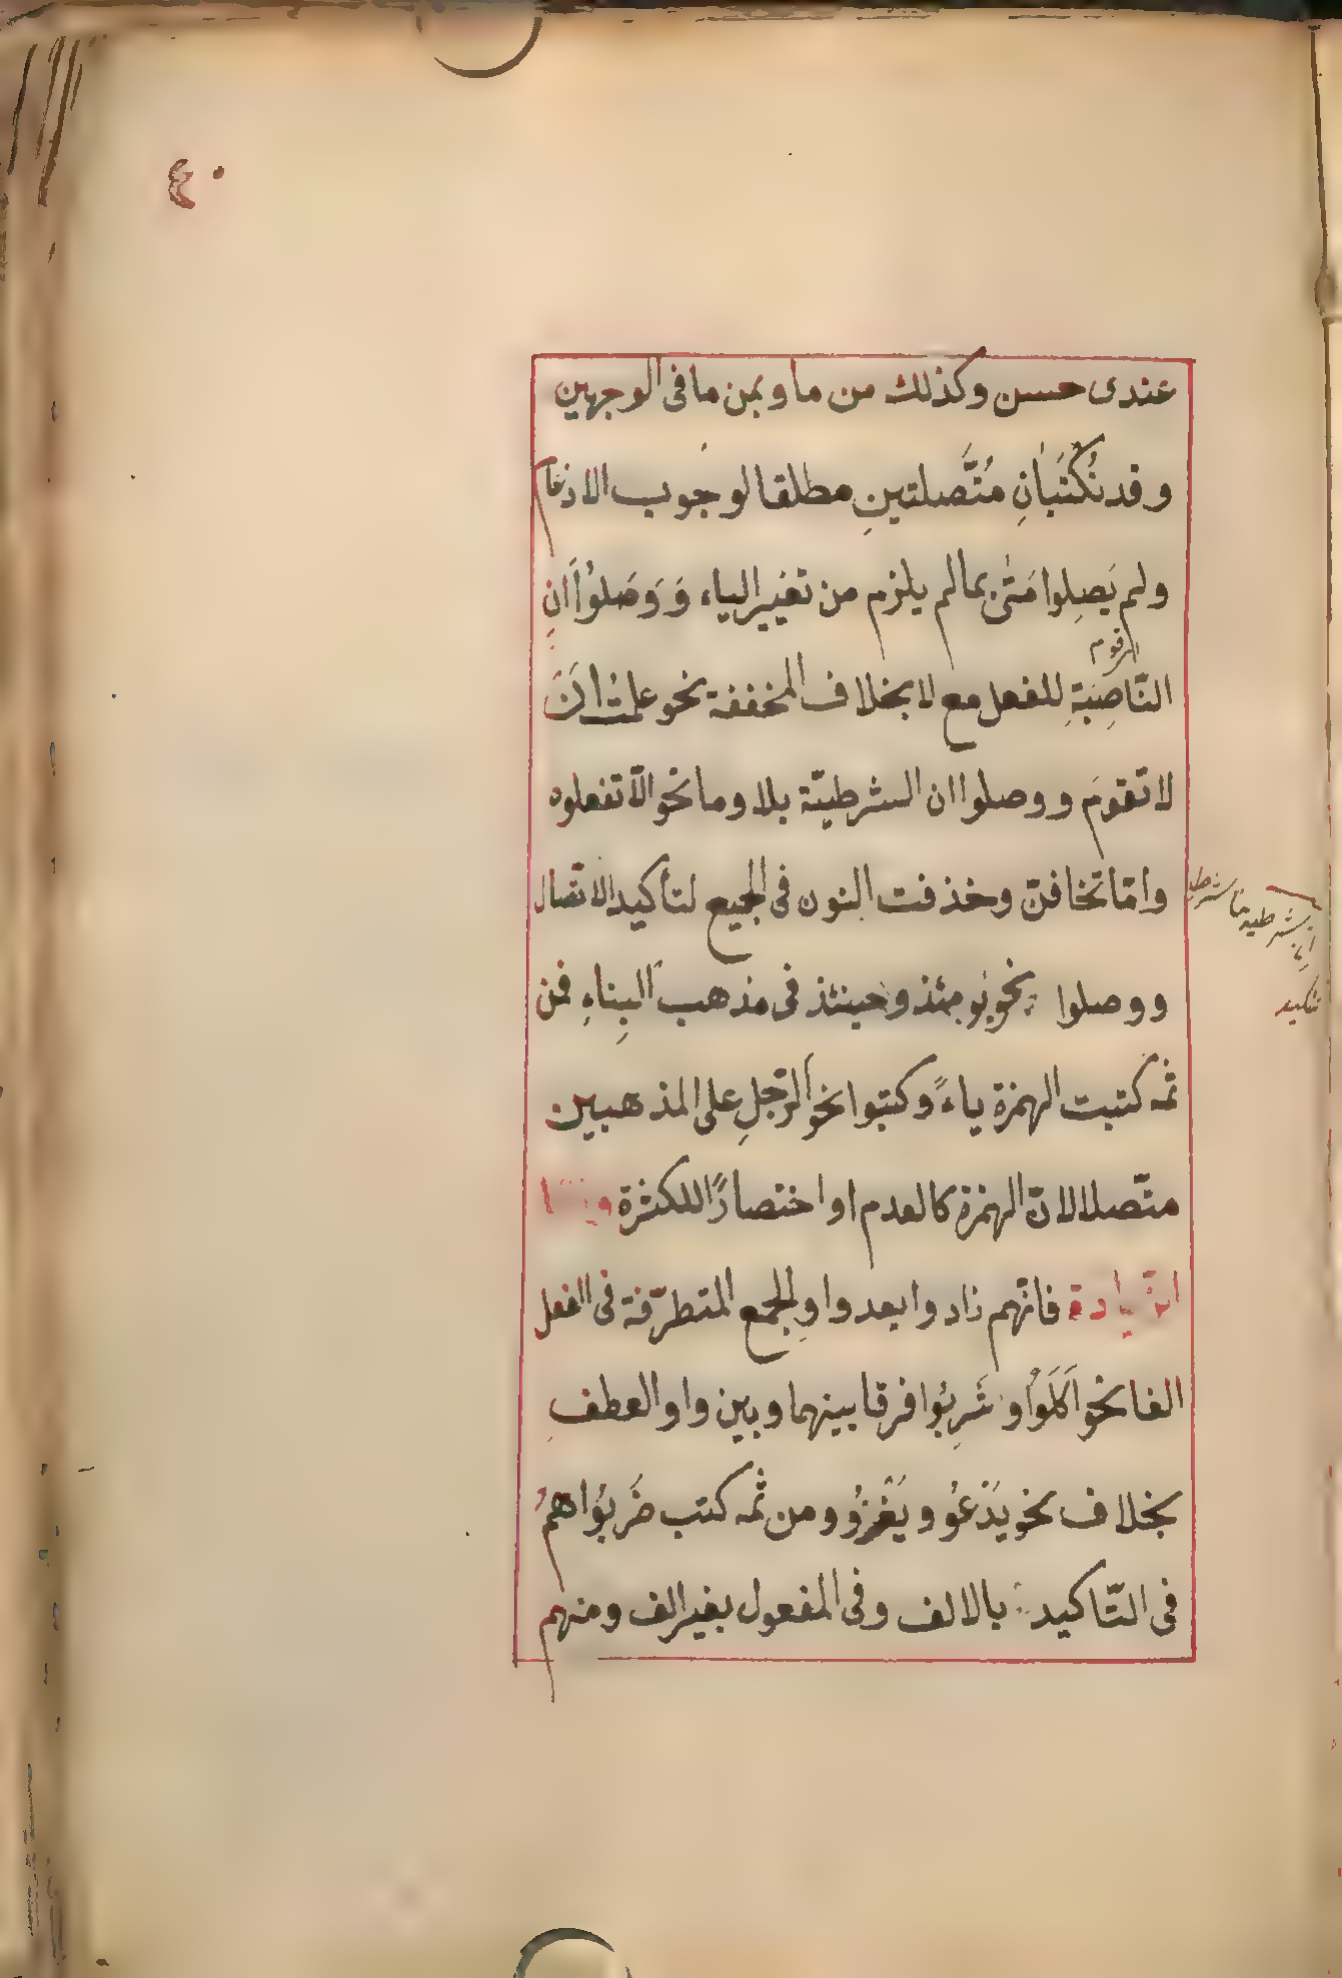 ٤٠
عندى حسن وكذلك من ما وبمن ما فى الوجهين
وقد تُكْتَبانِ مُتَّصلتينِ مطلقا لوجوب الادغام
ولم يَصِلوا مَتٰى بما لم يلزم من تغيير الياء وَ وَصَلوُا اَنِ
النّاصِبَةِ للفعل مع لا بخلاف المخففة نحو علمتُ اَنْ
لا تقومَ ووصلوا ان الشرطيّة بلا وما نحو الّا تفعلوه
وامّا تخافنّ وحذفت النون فى الجميع لتأكيد الاتّصال
ووصلوا نحو يومئذ وحينئذ فى مذهب البِناءِ فمن
ثمّه كتبت الهمزة ياءً وكتبوا نحو الرّجلِ على المذهبين
متّصلا لانّ الهمزة كالعدم او اختصارًا للكثرة وامّا
الزّيادة فانّهم زادوا بعد واوِ الجمع المتطرّفة فى الفعل
الفا نحو اَكَلَوُْا و شَرِبُوا فرقا بينهما وبين واو العطفِ
بخلاف نحو يَدْعُو ويَغْزُو ومن ثمّه كتب ضَرَبُوا همُ
فى التّاكيد بالالف وفى المفعول بغير الف ومنهم